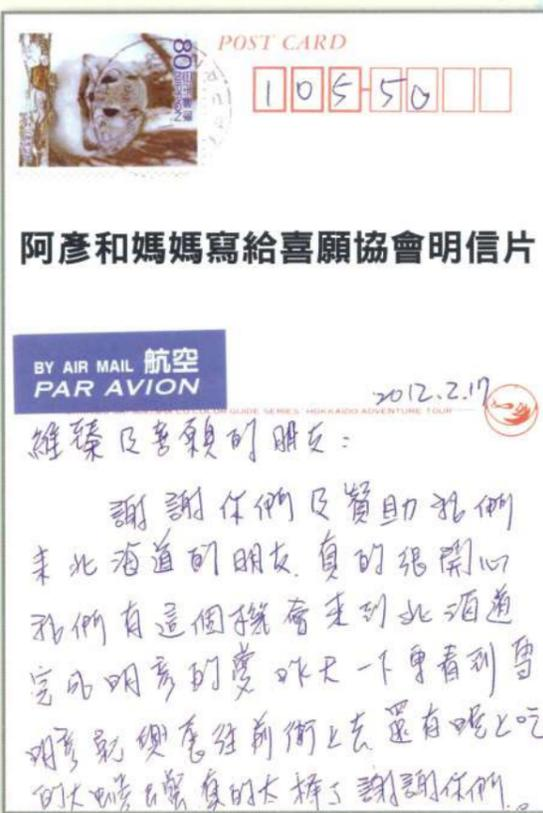 POST CARD
80
NIPPON
105-50
阿彥和媽媽寫給喜願協會明信片
BY AIR MAIL 航空
PAR AVION
2012.2.17
COLOR GUIDE SERIES HOKKAIDO ADVENTURE TOUR
維臻及喜願的朋友:
謝謝你們及贊助我們
來北海道的朋友.真的很開心
我們有這個機會來到北海道
完成明彥的夢昨天一下車看到雪
明彥就興奮往前衝上去 還有晚上吃
的大螃蟹真的太棒了謝謝你們.